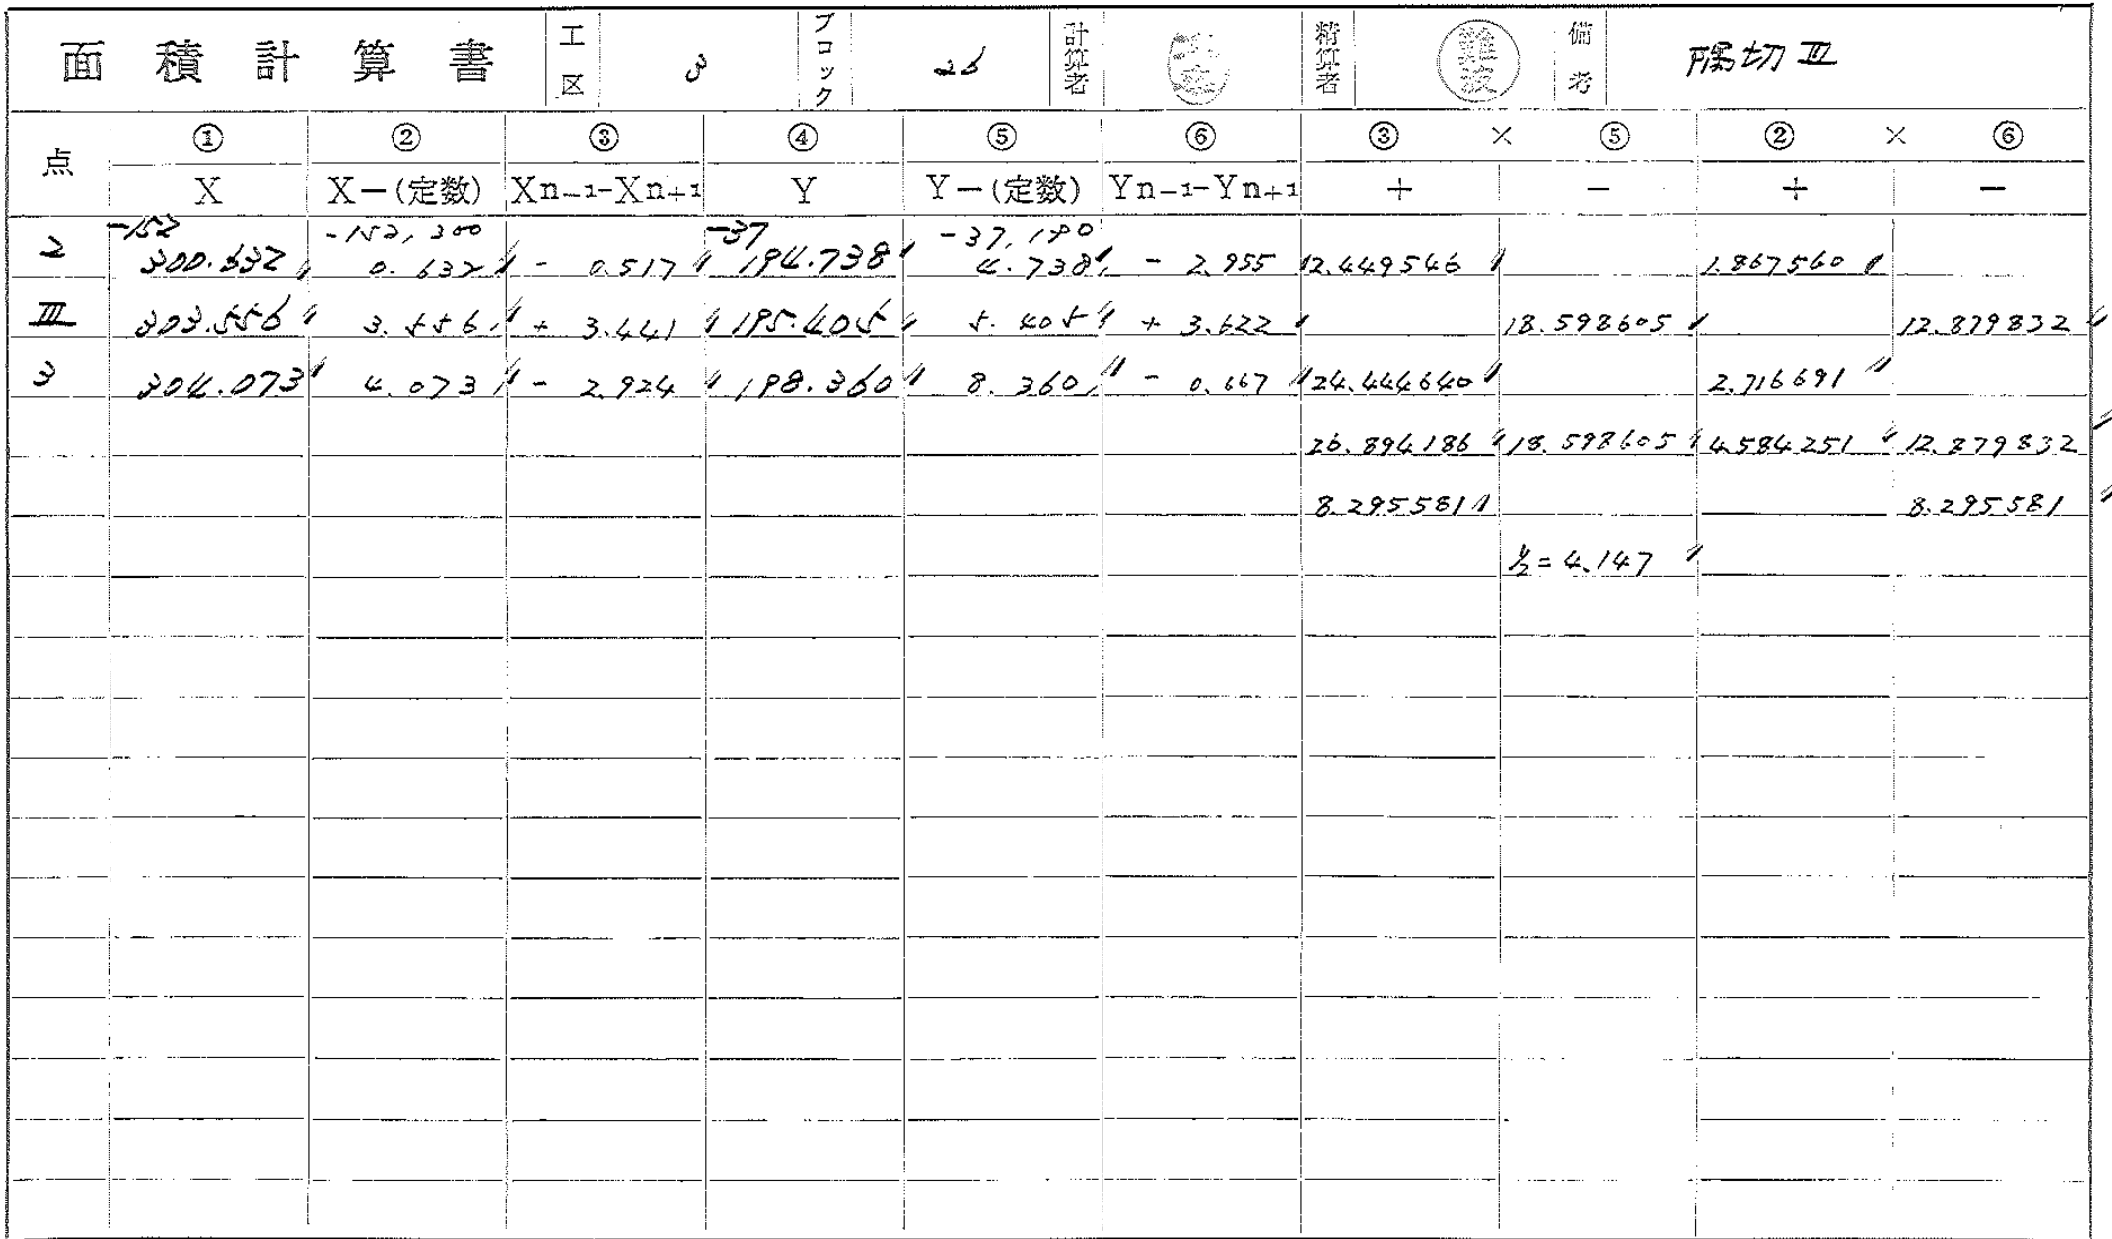 面積計算書 工区 3 ブロック 26 計算者 精算者 難波 備考 隅切 Ⅲ
点 ① ② ③ ④ ⑤ ⑥ ③ × ⑤ ② × ⑥
X X-(定数) Xn-1-Xn+1 Y Y-(定数) Yn-1-Yn+1 + - + -
-152 -152,300 -37 -37,190
2 300.632 0.632 - 0.517 194.738 4.738 - 2.955 2.449546 1.867560
Ⅲ 303.556 3.556 + 3.441 195.405 5.405 + 3.622 18.598605 12.879832
3 304.073 4.073 - 2.924 198.360 8.360 - 0.667 24.444640 2.716691
26.894186 18.598605 4.584251 12.879832
8.295581 8.295581
½=4.147